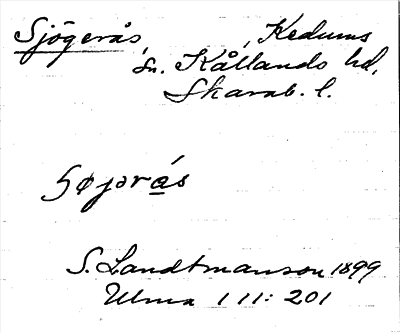 Sjögerås, Kedums
sn. Kållands hd,
Skarab. l.
S. Landtmanson 1899
Ulma 111: 201